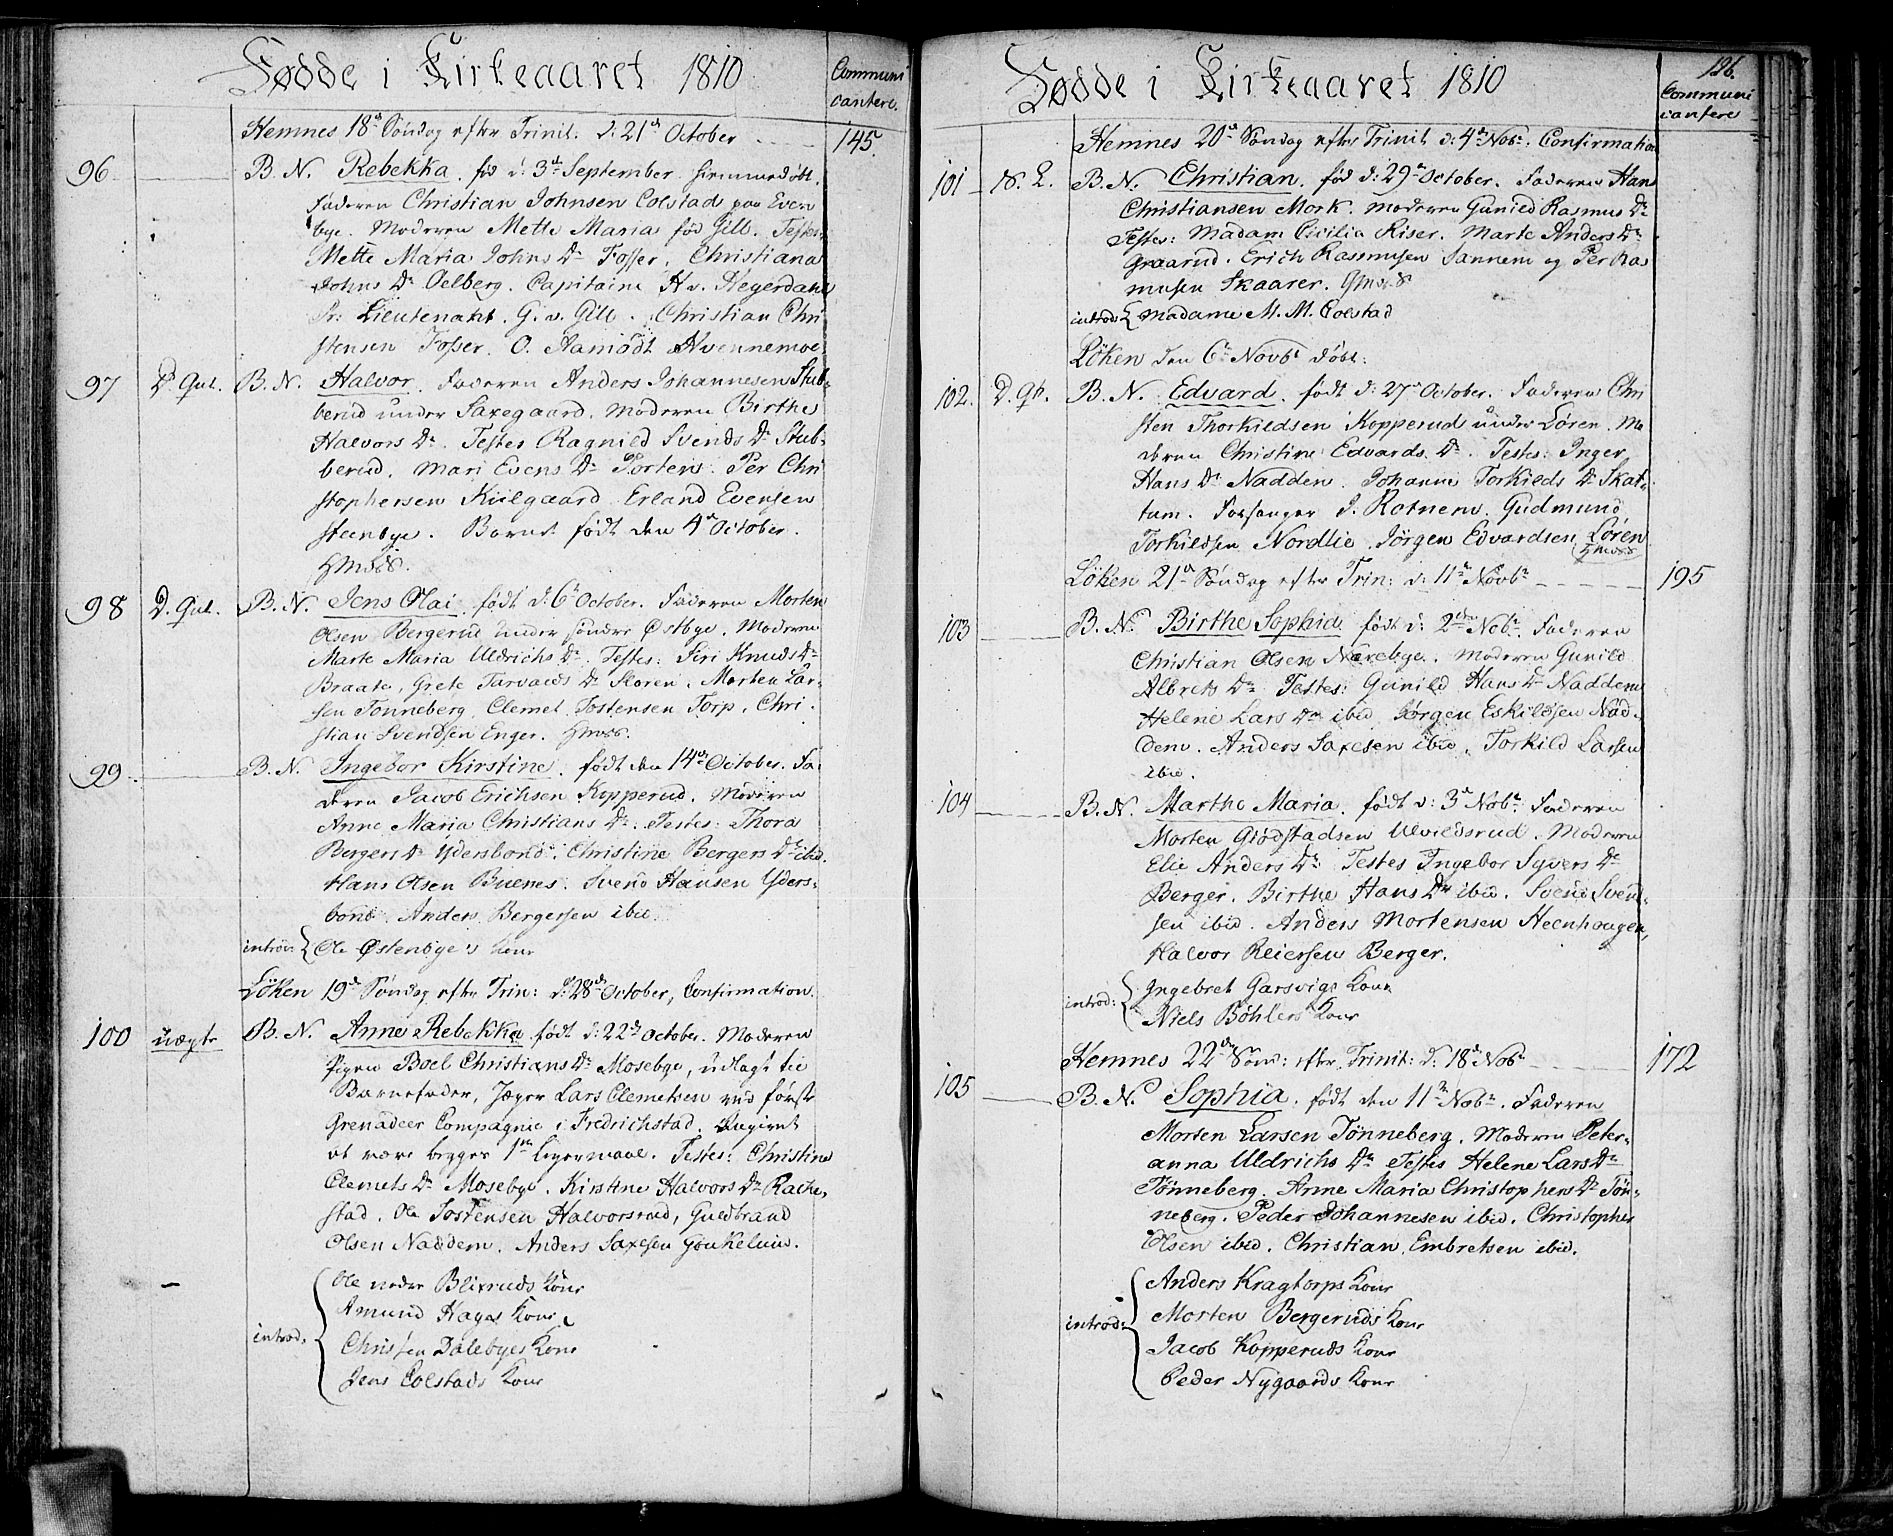 Fødde i Kirkeaaret 1810
Communi
cantere.
Hemnes 18de Søndag efter Trinit: d: 21de October 145.
96. B. N. Rebekka. fød d: 3de September hiemmedøbt.
Faderen Christian Johnsen Colstad paa Even
bye. Moderen Mette Maria fød Gill. Testes
Mette Maria Johns Dr Fosser. Christiana
Johns Dr Oelberg. Capitaine H v. Hegerdahl
Pr: Lieutenant. G. v. Gill. Christian Chri
stensen Fosser. O. Aamodt Hvennemoe
97 D. Gul. B. N. Halvor. Faderen Anders Johannesen Stub-
berud under Saxegaard. Moderen Birthe
Halvors Dr. Testes Ragnild Svends Dr Stub-
berud. Mari Evens Dr Porten. Per Chri
stophersen Kulgaard Erland Evensen
Steenbye. Barnet født den 4de October.
98 D. Gul. B. N. Jens Olai født d. 6te October. Faderen Morten
Olsen Bergerud under søndre Østbye. Moderen
Marte Maria Uldrichs Dr. Testes: Siri Knuds Dr
Braate, Grete Turvalds Dr Floren. Morten Lar-
sen Tønneberg. Clemet Tostensen Torp. Chri-
stian Svendsen Enger.
99. B. N. Ingebor Kirstine. født den 14de October. Fa-
deren Jacob Erichsen Kopperud. Moderen
Anne Maria Christians Dr. Testes: Thora
Bergers Dr Ydersbond. Christine Bergers Dr ibid.
Hans Olsen Buenes. Svend Hansen Yders-
bond. Anders Bergersen ibid.
introd: { Ole Østenbye's Kone
Løken 19de Søndag efter Trin: d: 28de October, Confirmation.
100 uægte B. N. Anne Rebekka født d: 22de October. Moderen
Pigen Boel Christians Dr Mosebye, udlagt til
Barnefader, Jæger Lars Clemetsen ved første
Grenadeer Compagnie i Fredrichstad. Angivet
at være begges 1ste leyermaal. Testes: Christine
Clemets Dr Mosebye. Kirstine Halvors Dr Rakke-
stad. Ole Tostensen Halvorsrud, Guldbrand
Olsen Naddem. Anders Saxesen Gunkelund.
introd: { Ole nedre Blixruds Kone
Amund Hages Kone
Christen Dalebyes Kone
Jens Colstads Kone
126.
Fødde i Kirkeaaret 1810
Communi
cantere
Hemnes 20de Søndag efter Trinit d: 4de Nobr. Confirmation
101 N. L. B. N. Christian. født d: 29de October. Faderen Hans
Christiansen Mork. Moderen Gunild Rasmus Dr
Testes: Madam Cicilia Riser. Marte Anders Dr
Graarud. Erich Rasmusen Sannem og Per Ras
musen Skaarer.
introd: { Madame M. M. Colstad
Løken den 6te Novbr døbt:
102. D. Gb. B. N. Edvard. født d: 27de October. Faderen Chri
sten Thorkildsen Kopperud under Løren. Mo
deren Christine Edvards Dr. Testes: Inger
Hans Dr Nadden. Johanne Torkilds Dr Skat-
tum. Forsanger J. Rotnem. Gudmund
Torkildsen Nordlie. Jørgen Edvardsen Løren
Løken 21de Søndag efter Trin: d: 11te Novbr 195
103 B. N. Birthe Sophia født d: 2den Nobr. Faderen
Christian Olsen Nærebye. Moderen Gunild
Albrets Dr Testes: Gunild Hans Dr Nadden
Helene Lars Dr ibid Jørgen Eskildsen Nad-
dem. Anders Saxesen ibid. Torkild Larsen
ibid.
104 B. N. Marthe Maria. født d: 3de Nobr. Faderen
Morten Glødstadsen Ulvildsrud. Moderen
Elie Anders Dr Testes Ingebor Syvers Dr
Berger. Birthe Hans Dr ibid. Svend Svend-
sen ibid. Anders Mortensen Heenhougen,
Halvor Reiersen Berger.
introd: { Ingebret Garsvigs Kone
Niels Bøhlers Kone
Hemnes 22de Sønd: efter Trinit: d: 18de Nobr 172
105 B. N. Sophia. født den 11te Nobr. Faderen
Morten Larsen Tønneberg. Moderen Peter-
anna Uldrichs Dr Testes Helene Lars Dr
Tønneberg. Anne Maria Christophers Dr Tøn-
neberg. Peder Johannesen ibid. Christopher
Olsen ibid. Christian Embretsen ibid.
introd: { Anders Kragtorps Kone
Morten Bergeruds Kone
Jacob Kopperuds Kone
Peder Nygaards Kone